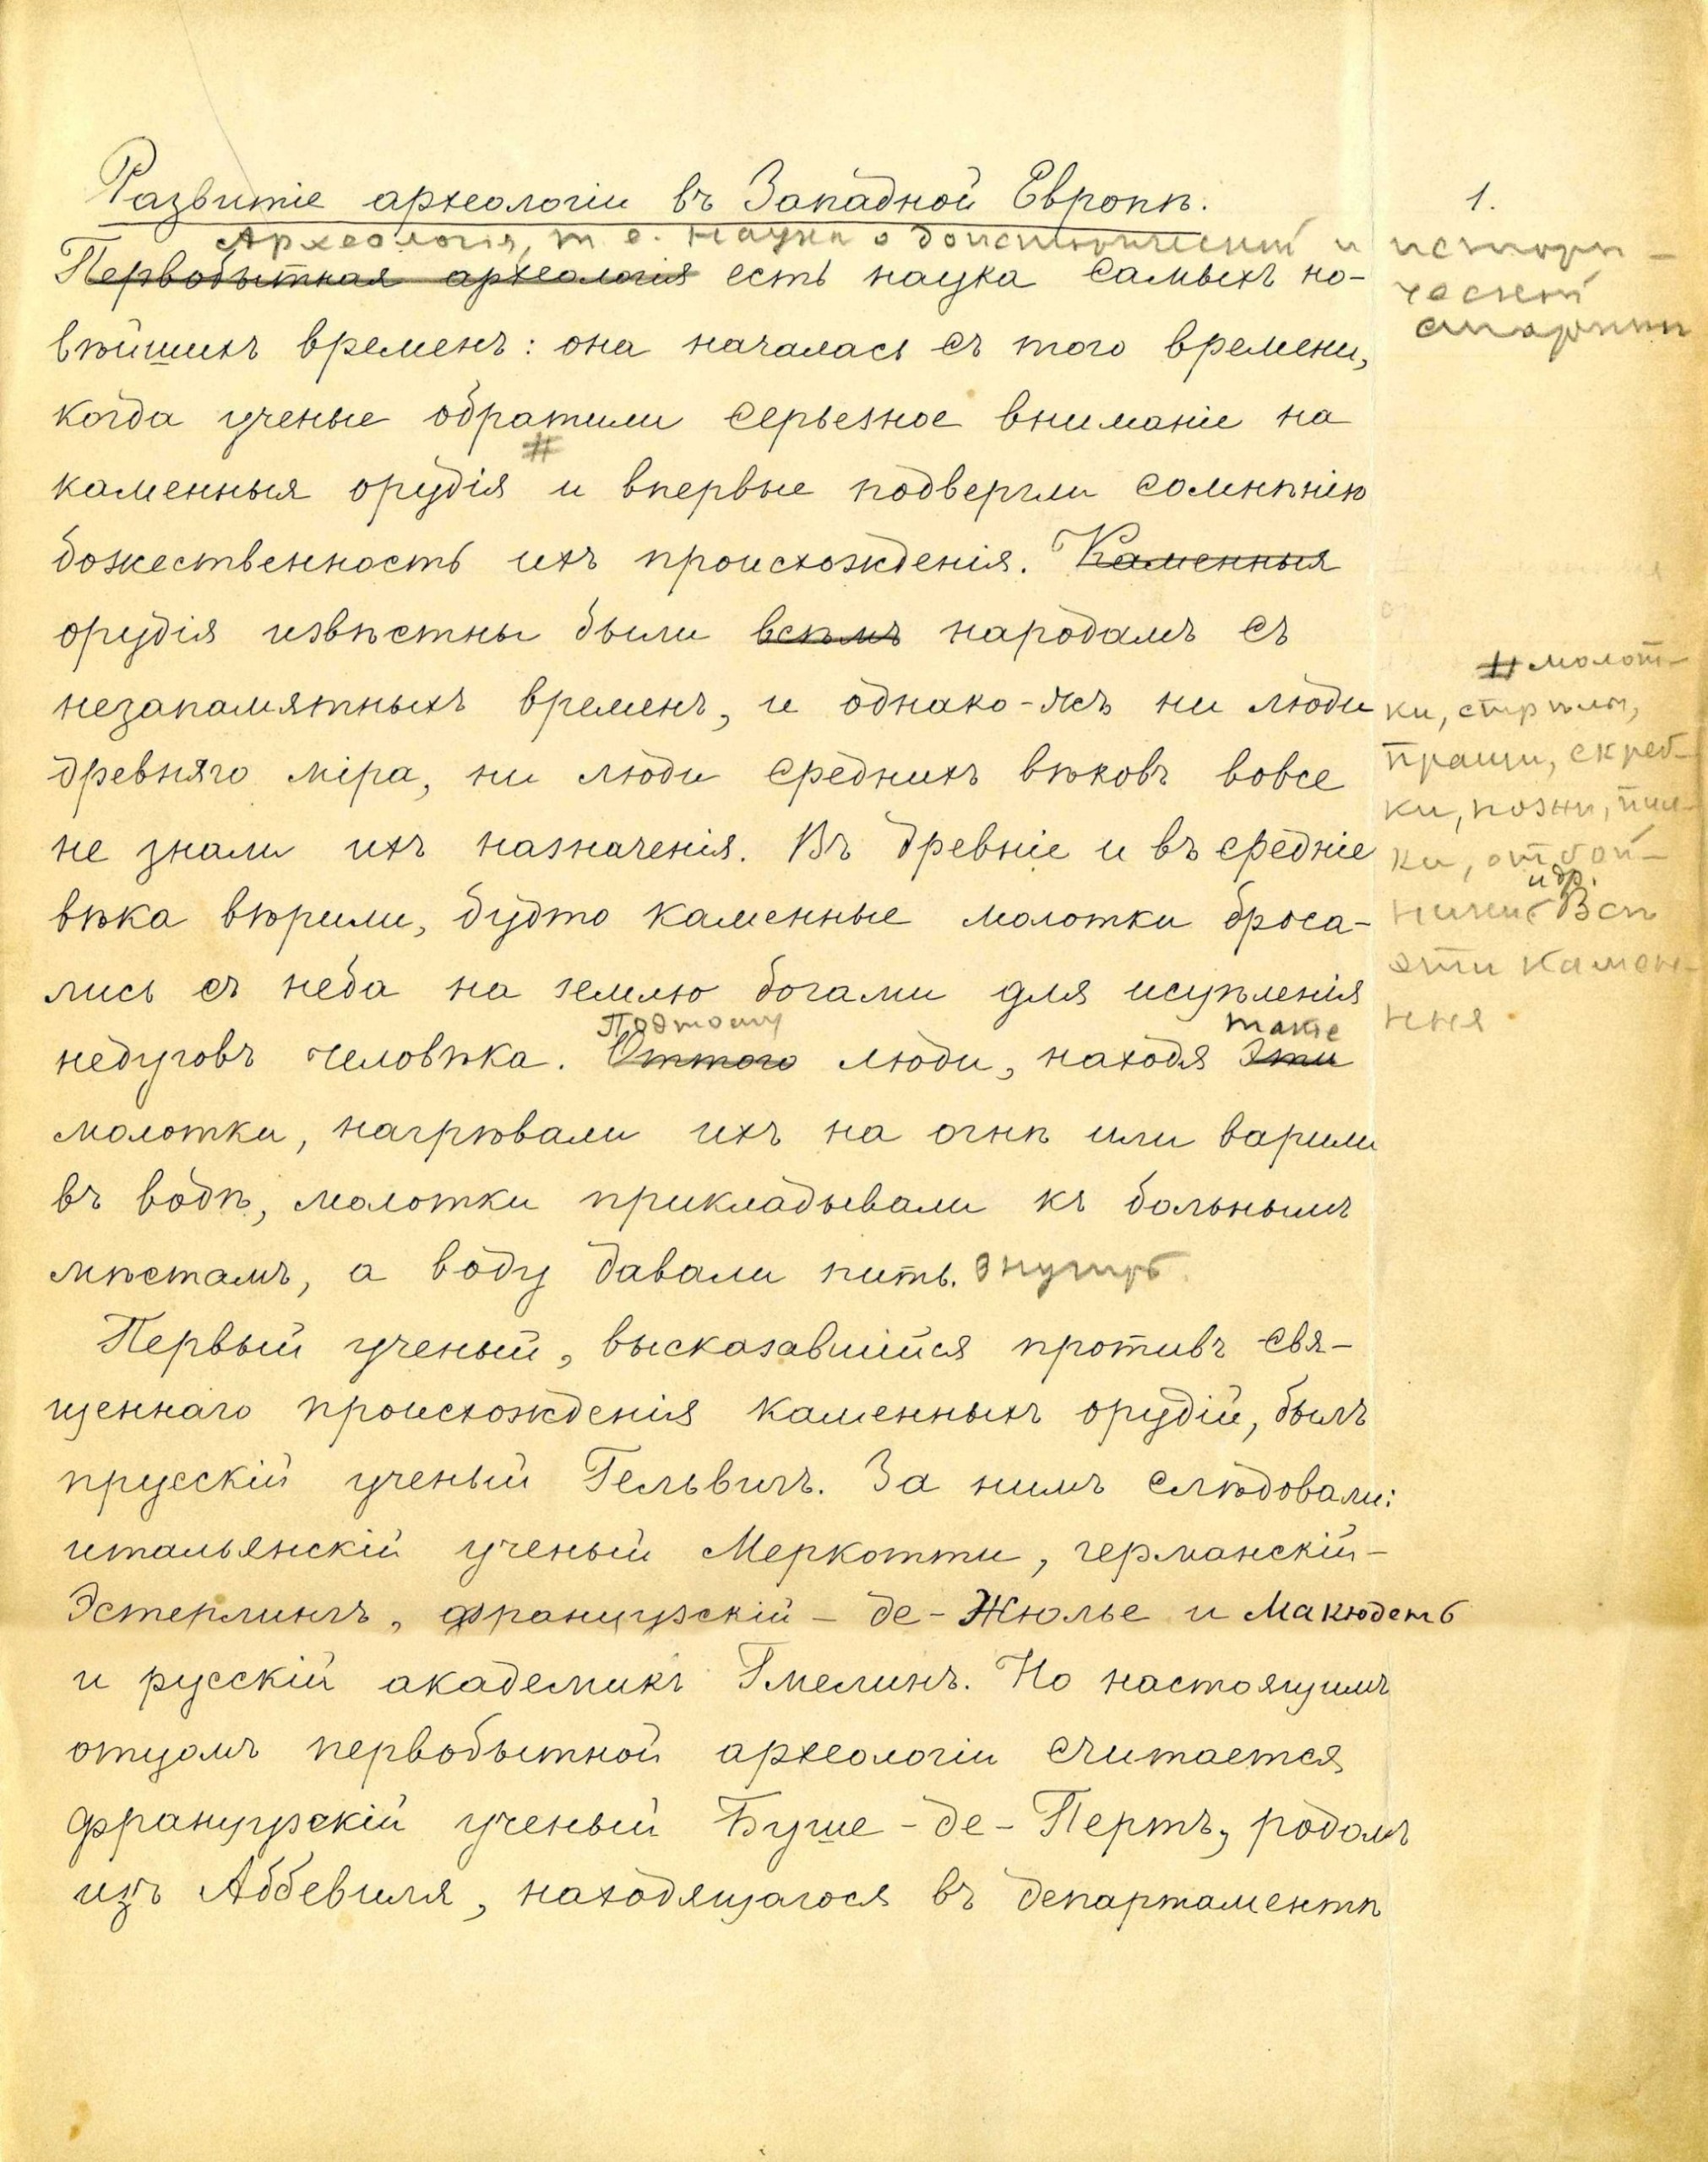 Развитіе археологіи въ Западной Европѣ.
1.
Археологія, т. е. наука о доисторической и истори-
ческой
старинѣ
Первобытная археологія есть наука самыхъ но-
вѣйшихъ временъ: она началась съ того времени,
когда ученые обратили серьезное вниманіе на
#
каменныя орудія и впервые подвергли сомнѣнію
божественность ихъ происхожденія. Каменныя
орудія извѣстны были всѣмъ народамъ съ
незапамятныхъ временъ, и однако-жъ ни люди
древняго міра, ни люди среднихъ вѣковъ вовсе
не знали ихъ назначенія. Въ древніе и въ средніе
вѣка вѣрили, будто каменные молотки броса-
лись съ неба на землю богами для исцѣленія
Поэтому такіе
недуговъ человѣка. Оттого люди, находя эти
молотки, нагрѣвали ихъ на огнѣ или варили
въ водѣ, молотки прикладывали къ больнымъ
мѣстамъ, а воду давали пить. внутрь
# молот-
ки, стрѣлы,
пращи, скреб-
ки, ножи, пил-
ки, отбой-
и др.
ники Всѣ
эти камен-
ныя
Первый ученый, высказавшійся противъ свя-
щеннаго происхожденія каменныхъ орудій, былъ
прусскій ученый Гельвигъ. За нимъ слѣдовали:
итальянскій ученый Меркотти, германскій-
Эстерлингъ, французскій - де-Жюлье и Макюдель
и русскій академикъ Гмелинъ. Но настоящимъ
отцомъ первобытной археологіи считается
французскій ученый Буше-де-Пертъ, родомъ
изъ Аббевиля, находящагося въ департаментѣ